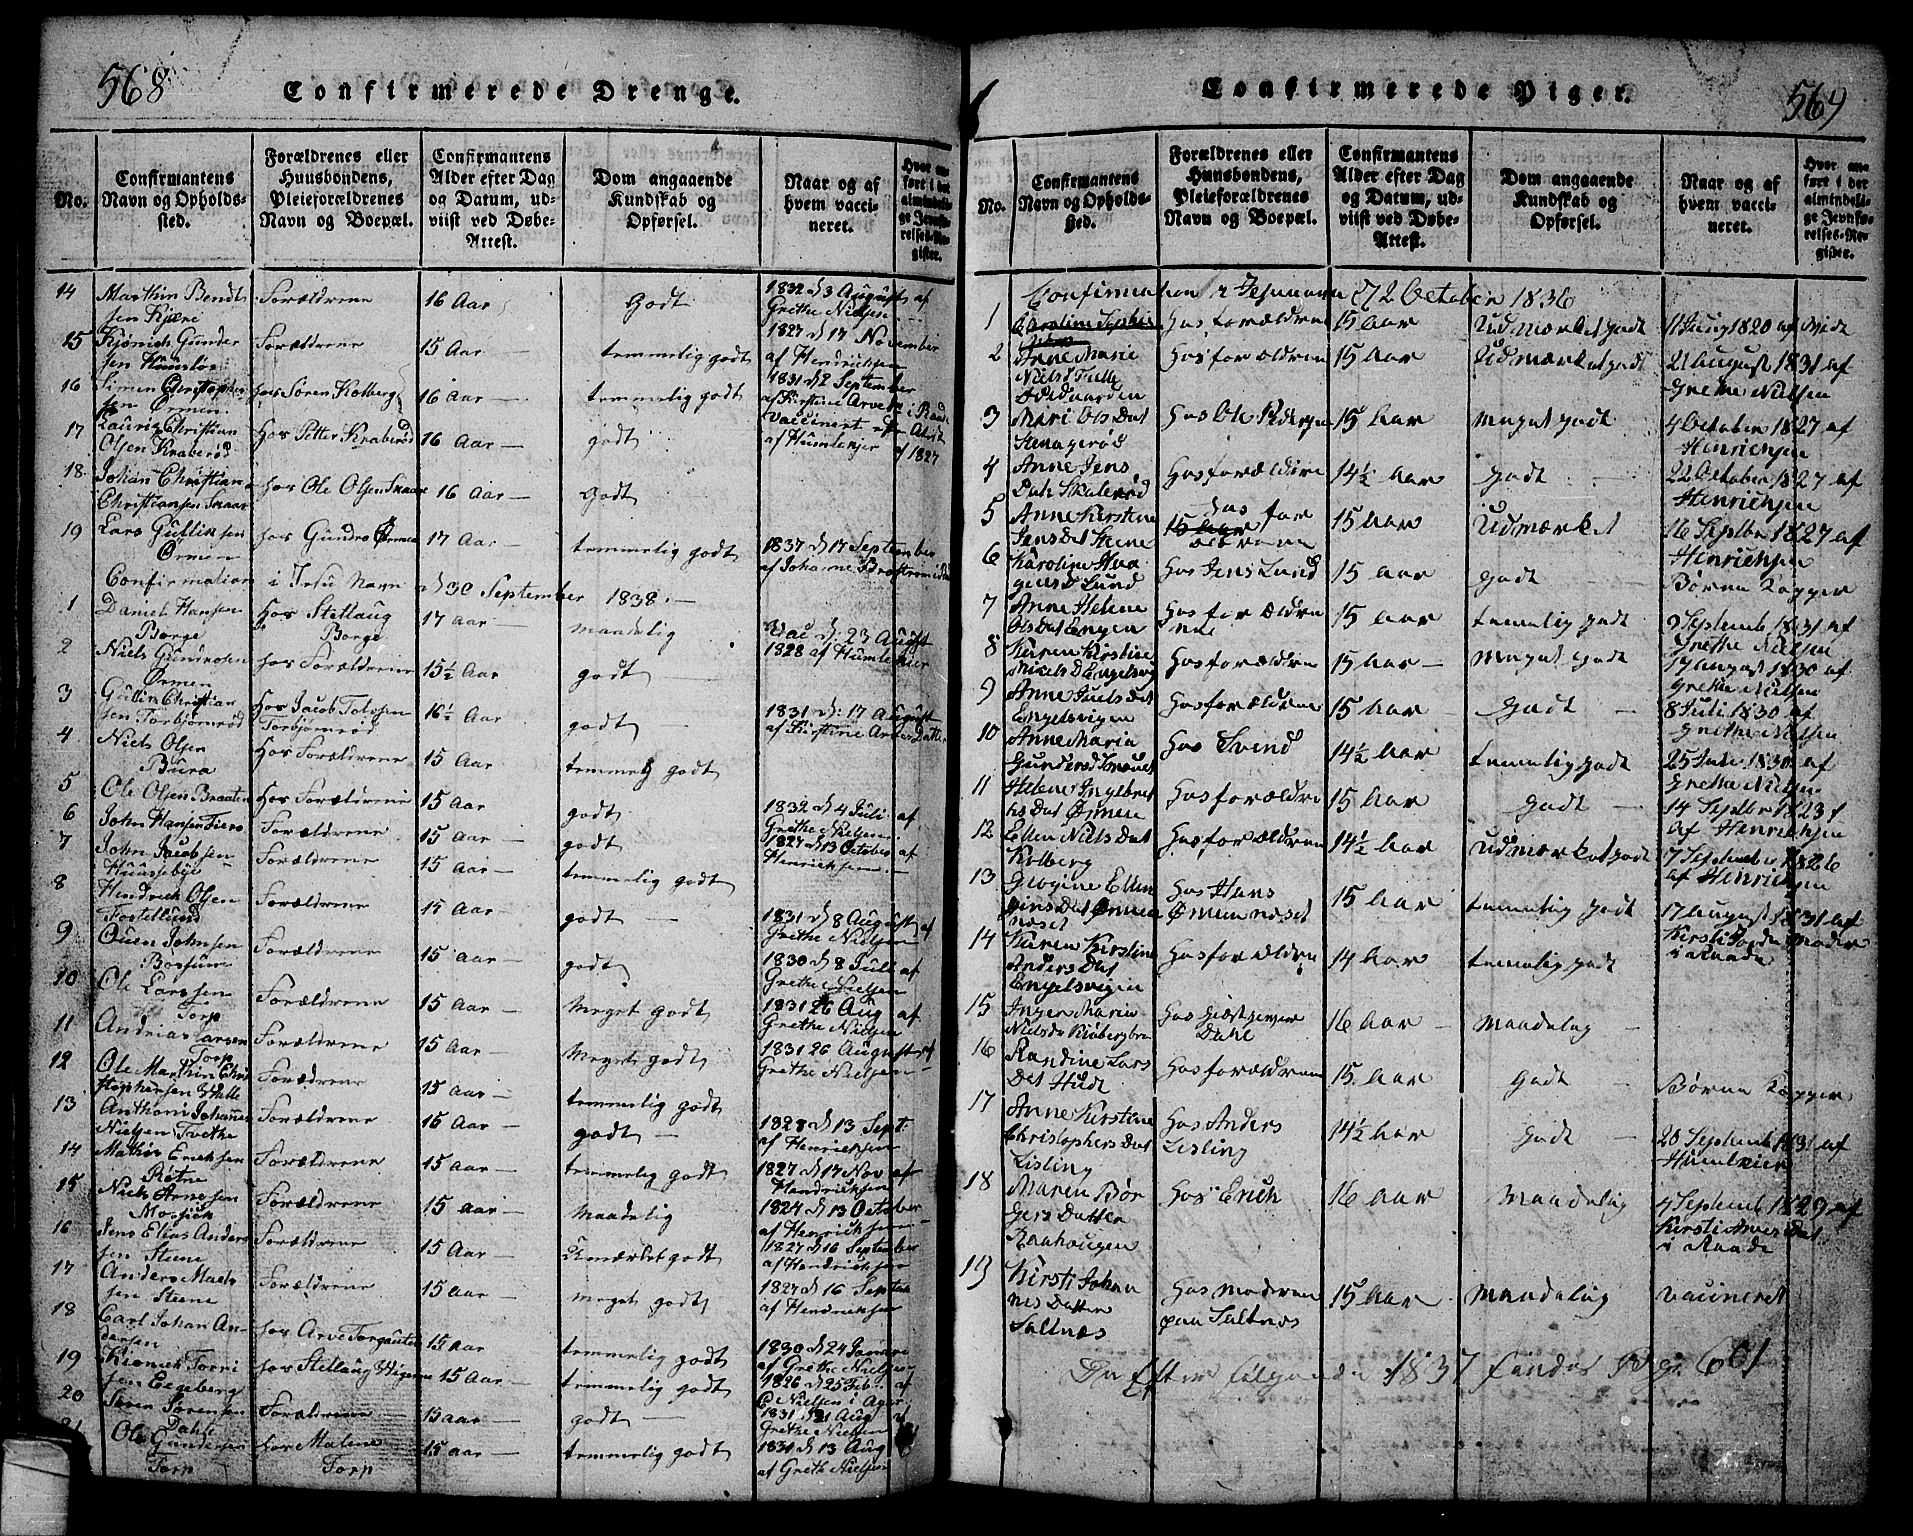 568
Confirmerede Drenge.
No.
Confirmantens
Navn og Opholds-
sted.
Forældrenes eller
Huusbondens,
Pleieforældrenes
Navn og Boepæl.
Confirmantens
Alder efter Dag
og Datum, ud-
viist ved Døbe-
Attest.
Dom angaaende
Kundskab og
Opførsel.
Naar og af
hvem vacci-
neret.
Hvor an-
ført i det
almindeli-
ge Jevnfø-
relses-Re-
gister.
14 Marthin Bendt
sen Kjære
Forældrene
16 Aar
Godt
1832 d 3 August af
Grethe Nielsen
15 Kiønich Gunder
sen
Forældrene
15 Aar
temmelig godt
1827 d 17 November
af Hendrichsen
16 Simen Christophe
sen Ørmen
hos Søren Kolberg
16 Aar
temmelig godt
1831 d 2 September
af Kirstine Arve
17 Lauritz Christian
Olsen Kraberød
hos Petter Kraberød
16 Aar
godt
Vaccinert
af Humlekjer
af 1827
18 Johan Christian
Christiansen Skaar
hos Ole Olsen Skaar
16 Aar
Godt
19 Lars Gullichsen
Ørmen
hos Gunder Ørmen
17 Aar
temmelig godt
1837 d 17 September
af Johanne
Confirmation i Jesu Navn d 30 September 1838
1 Daniel Hansen
Borge
Hos Stellaug
Borge
17 Aar
maadelig
Vac d: 23 August
1828 af Humlekier
2 Niels Gundersen
Ørmen
hos Forældrene
15½ Aar
godt
3 Gullin Christian
sen Torbjørnrød
Hos Jacob Tolssen
Torbjørnrød
16½ Aar
godt
1831 d: 17 August
af Kirstine Arves Datter
4 Niels Olsen
Bura
Hos Forældrene
15 Aar
temmelig godt
5 Ole Olsen Braaten
Hos Forældrene
15 Aar
godt
1832 d 4 Juli af
Grethe Nielsen
6 John Hansen
Forældrene
15 Aar
godt
1827 d 13 October af
Henrichsen
7 John Jacobsen
Huusebye
Forældrene
15 Aar
temmelig godt
8 Hendrich Olsen
Forældrene
15 Aar
godt
1831 d 8 August af
Grethe Nielsen
9 Ouen Johnsen
Forældrene
15 Aar
godt
1830 d 8 Juli af
Grethe Nielsen
10 Ole Larssen
Torp
Forældrene
15 Aar
Meget godt
1831 26 Aug af
Grethe Nielsen
11 Andrias Larsen
Torp
Forældrene
15 Aar
Meget godt
1831 26 August af
Grethe Nielsen
12 Ole Marthin Chri
stophersen
Forældrene
15 Aar
temmelig godt
13 Anthoni Johannes
Nielsen Tvethe
Forældrene
16 Aar
godt
1828 d 13 Sept:
af Henrichsen
14 Mathis Erichsen
Forældrene
15 Aar
temmelig godt
1827 d 17 Nov af
Hendrichsen
15 Niels Arnesen
Mosvik
Forældrene
15 aar
Maadelig
1824 d 13 October
af Henrichsen
16 Jens Elias Anders
sen Steene
Forældrene
15 Aar
Udmærket godt
1827 d 16 September
af Hendrichsen
17 Anders Mads
sen Steene
Forældrene
15 Aar
meget godt
1827 d 16 Septem
af Hendrichsen
18 Carl Johan An-
dersen
hos Arve Torgautsen
15 Aar
temmelig godt
1830 d 24 Januri
af Grethe Nielsen
19 Kiønich Torri
sen Eegeberg
hos Stellaug
15 Aar
temmelig godt
1826 d 25 Feb: af
C Nielsen i Ager
20 Søren Sørensen
Dahl
Forældrene
15 aar
godt
1831 d 21 Aug af
Grethe Nielsen
21 Ole Gundersen
Torp
hos Malene
Torp
15 Aar
temmelig godt
1831 d 13 Aug
af Grethe Nielsen
569
Confirmerede Piger.
No.
Confirmantens
Navn og Opholds-
sted.
Forældrenes eller
Huusbondens,
Pleieforældrenes
Navn og Boepæl.
Confirmantens
Alder efter Dag
og Datum, ud-
viist ved Døbe-
Attest.
Dom angaaende
Kundskab og
Opførsel.
Naar og af
hvem vacci-
neret.
Hvor an-
ført i det
almindeli-
ge Jevnfø-
relses-Re-
gister.
Confirmation i Jesu navn d 2 October 1836
1 Caroline Sophie
Hos forældrene
15 Aar
Udmærket godt
11 Juny 1820 af
2 Anne Marie
Niels
Hos forældrene
15 Aar
Udmærket godt
21 August 1831 af
Grethe Nielsen
3 Mari Ols Dat
Hos Ole Pedersen
15 Aar
Maget godt
4 October 1827 af
Henrichsen
4 Anne Jens
Dat Skalerød
Hos forældrene
14½ Aar
Godt
22 October 1827 af
Henrichsen
5 Anne Kirstine
Jens Dat Steene
15 Aar
hos for
ældrene
15 Aar
Udmærket
16 Septbr 1827 af
Henrichsen
6 Karoline Haa
gens D Lund
Hos Jens Lund
15 Aar
godt
Børne Kopper
7 Anne Helene
Ols Dat Engen
Hos foræld
rene
15 Aar
temelig godt
2 Septemb 1831 af
Grethe Nielsen
8 Karen Kirstine
Niels D Engelsvig
Hos forældrene
15 Aar
Maget godt
17 August 1830 af
Grethe Nielsen
9 Anne Niels Dat
Engelsvigen
Hos forældrene
15 Aar
Godt
8 Juli 1830 af
Grethe Nielsen
10 Anne Maria
Gunders D
Hos Svend
14½ Aar
temelig godt
25 Juli 1830 af
Grethe Nielsen
11 Helene Ingebret
hs Dat Ørmen
Hos forældre
15 Aar
Godt
14 Septbr 1823
af Henrichsen
12 Ellen Niels Dat
Kolberg
Hos forældrene
14½ Aar
Udmærket godt
7 September 1826
af Henrichsen
13 Georgine Ellen
Jens Dat Ørmen
næset
Hos Hans
Ørmennæset
15 Aar
temelig godt
17 August 1831 af
14 Karen Kirstine
Anders Dat
Engelsvigen
Hos forældren
14 Aar
temelig godt
Kirsti Jorde Moder
i Raade
15 Inger Maria
Niels D
Hos Giæstgiver
Dahl
16 Aar
Maadelig
16 Randine Lars
Dat Huldt
Hos forældrene
15 Aar
Godt
Børne Kopper
17 Anne Kirstine
Christophers Dat
Lisling
Hos Anders
Lisling
14½ Aar
Godt
20 Septemb 1831 af
Humlekier
18 Maren Bør
gers Datter
Raahougen
Hos Erich
16 Aar
Maadelig
4 Septemb 1829 af
Kirsti Arves Dat
i Raade
19 Kirsti Johan
nes Datter
Saltnæs
Hos Moderen
paa Saltnæs
15 Aar
Maadelig
Vaccineret
De Efterfølgende 1837 findes Pag: 601